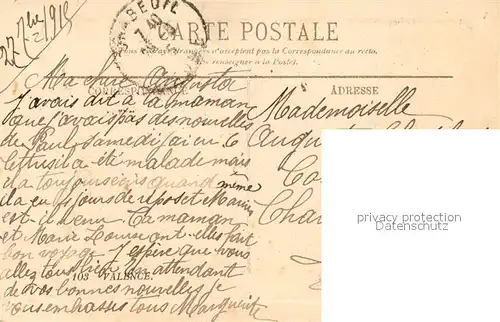 27 7bre 1915
CHABEUIL
CARTE POSTALE
Tous les Pays étrangers n'acceptent pas la Correspondance au recto.
(Se renseigner à la Poste).
CORRESPONDANCE
ADRESSE
Ma chère Augusta
J'avais dit à ta maman
que j'avais pas des nouvelles
de Paul, samedi j'ai eu 6
lettres il a été malade mais
il a toujours écris quand même
il a eu 8 jours de repos et Marius
est-il venu Ta maman
et Marie Louise ont-elles fait
bon voyage J'espère que vous
allez tous bien En attendant
de vos bonnes nouvelles je
vous embrasses tous Marguerite
103 VALENCE.
Mademoiselle
privacy protection
Datenschutz